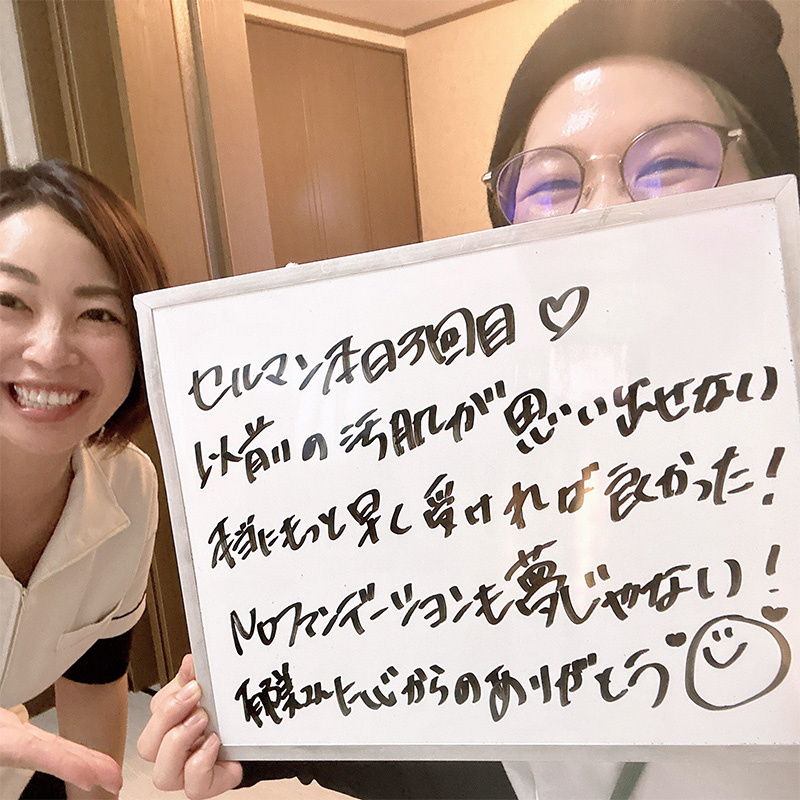 セルマン本日3回目♡
以前の汚肌が思い出せない
本当にもっと早く受ければ良かった!
Noファンデーションも夢じゃない!
有美さんに心からのありがとう